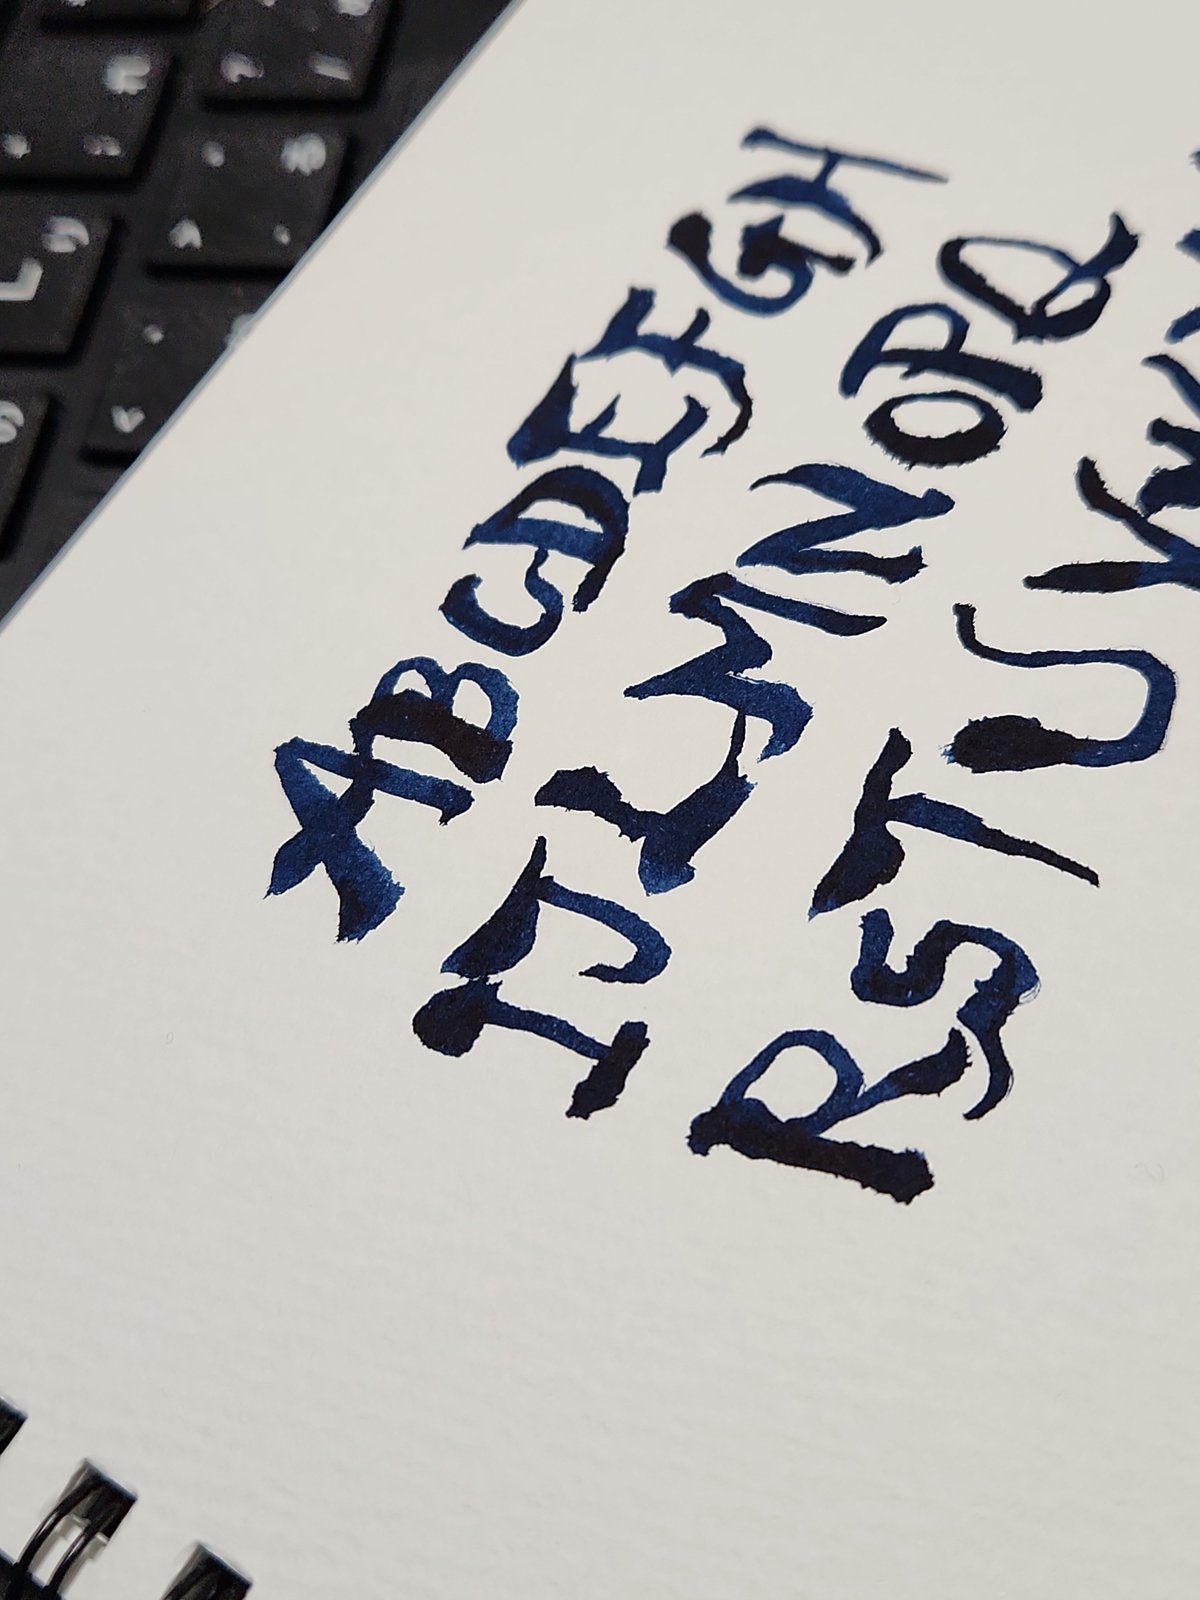 ABCDEFGH
IJLMNOPQ
RSTUV